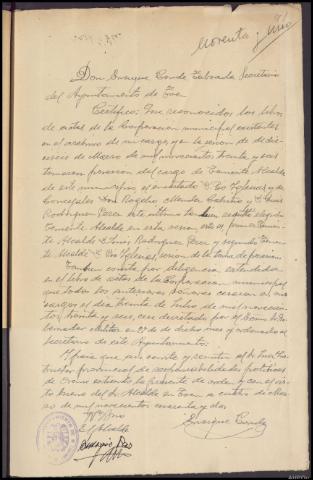 Noventa y ocho
Don Enrique Conde Taboada Secretario
del Ayuntamiento de Toen
Certifico: Que reconocidos los libros
de actas de la Corporacion municipal existentes
en el archivo de mi cargo, y en la sesion de die
ciseis de Marzo de mil novecientos treinta y seis
tomaron posesion del cargo de Teniente Alcalde
de este municipio, el exaltado D. Eo Iglesias y de
Concejales Don Rogelio Mendez Cabrita y D. Luis
Rodriguez Perez este ultimo tambien resultó elegido
Teniente Alcalde en esta sesion este es primer Tenien
te Alcalde D. Luis Rodriguez Perez y segundo Tenien
te Alcalde D. Eo Iglesias, sesion de la toma de posesion.
Tambien consta por diligencia extendida
en el libro de actas de la Corporacion municipal
que todos los anteriores señores cesaron en sus
cargos el dia treinta de Julio de mil novecien
tos treinta y seis, ser decretado por el Excmo. Sr. Go
bernador Militar en 28 de dicho mes y ordenado al
Secretario de este Ayuntamiento.
Y para que así conste y remitir al Sr. Juez Ins
tructor provincial de responsabilidades politicas
de Orense extiendo la presente de orden y con el visto
bueno del Sr. Alcalde en Toen a cuatro de Mar
zo de mil novecientos cuarenta y dos.
Vº Bueno
El Alcalde
Enrique Conde